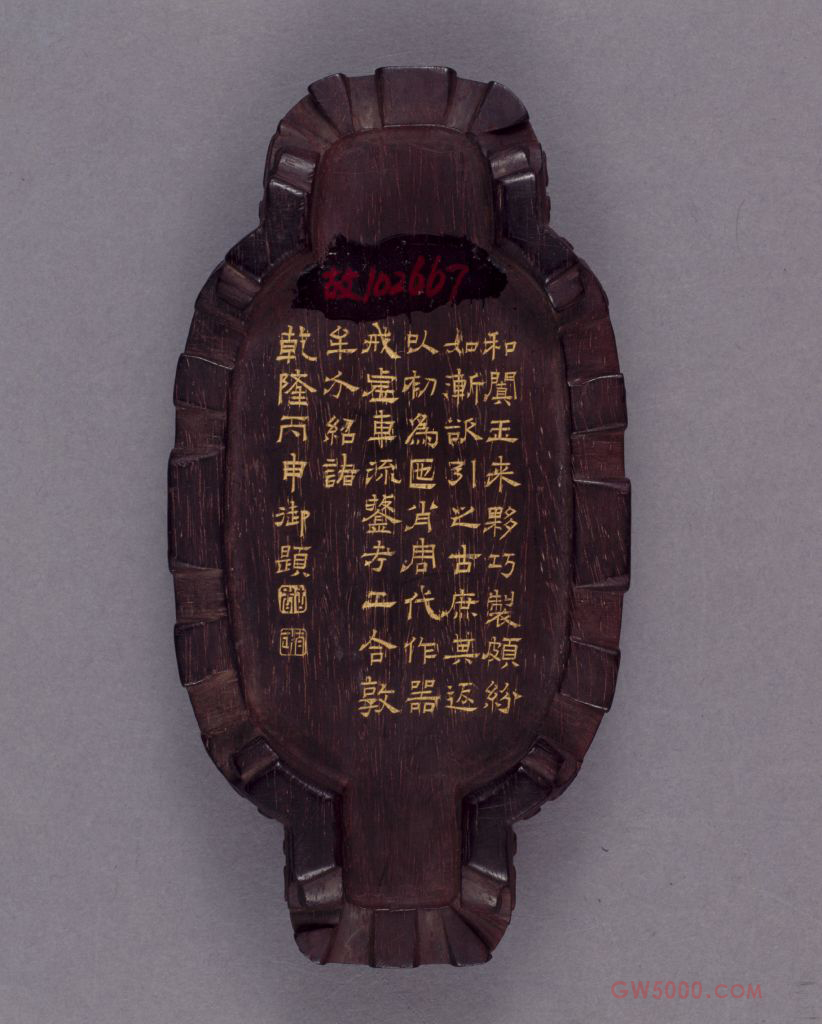 故102667
和闐玉来夥巧製頗紛
如漸欲引之古庶其返
以初為匜肖周代作器
戒虛車流鋬考工合敦
牟介紹諸
乾隆丙申御題
GW5000.COM